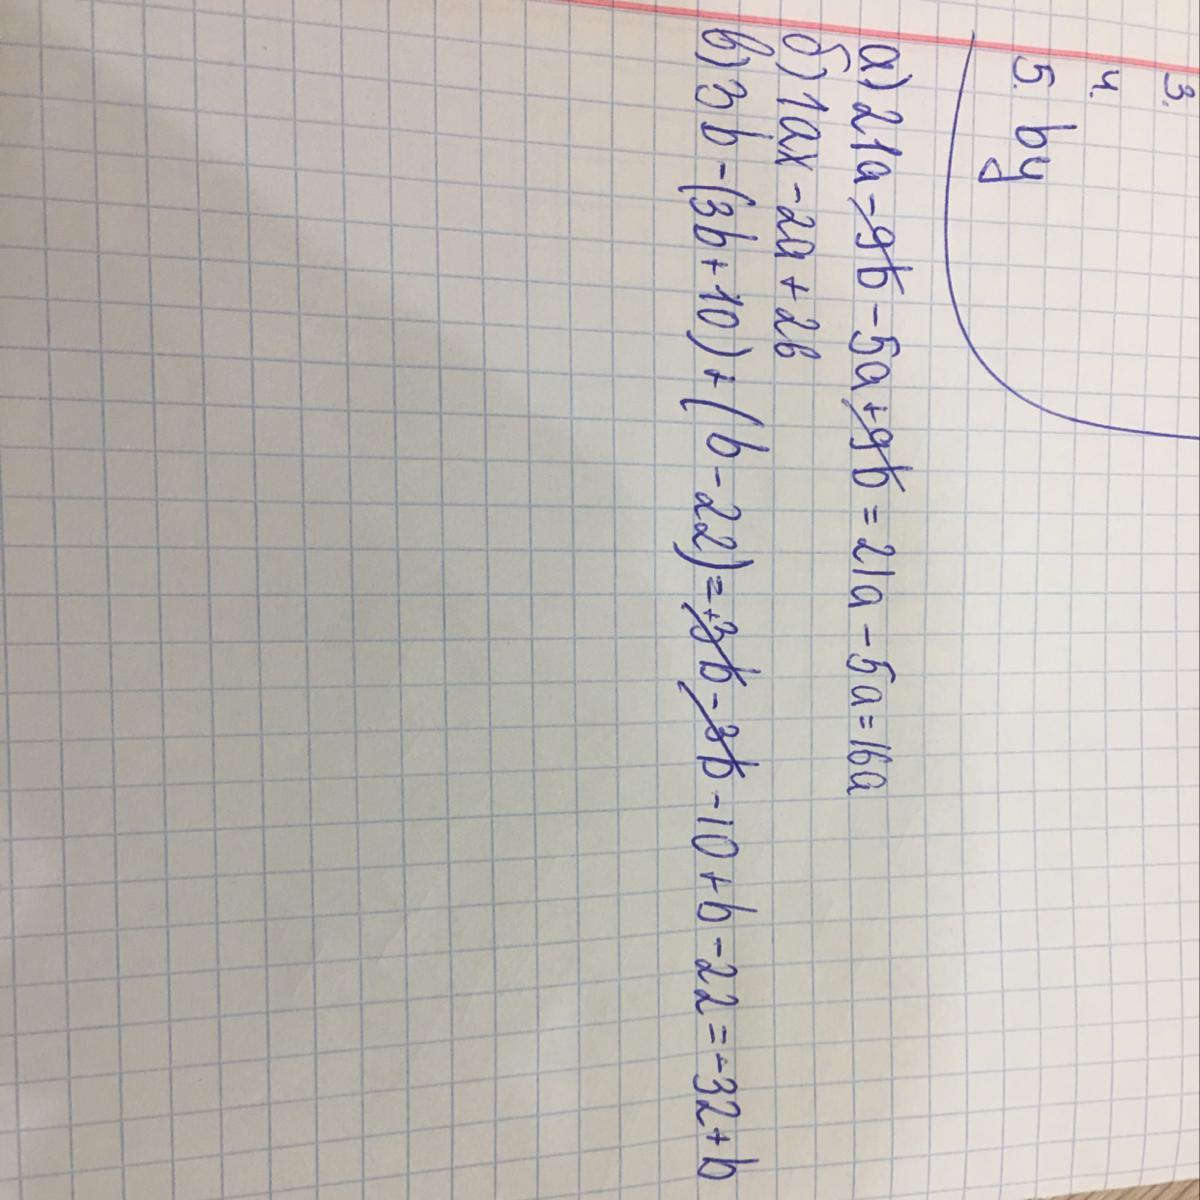 3.
4.
5. by
а) 21a - 9b - 5a + 9b = 21a - 5a = 16a
б) 1ax - 2a + 2в
в) 3b - (3b + 10) + (b - 22) = +3b - 3b - 10 + b - 22 = -32 + b